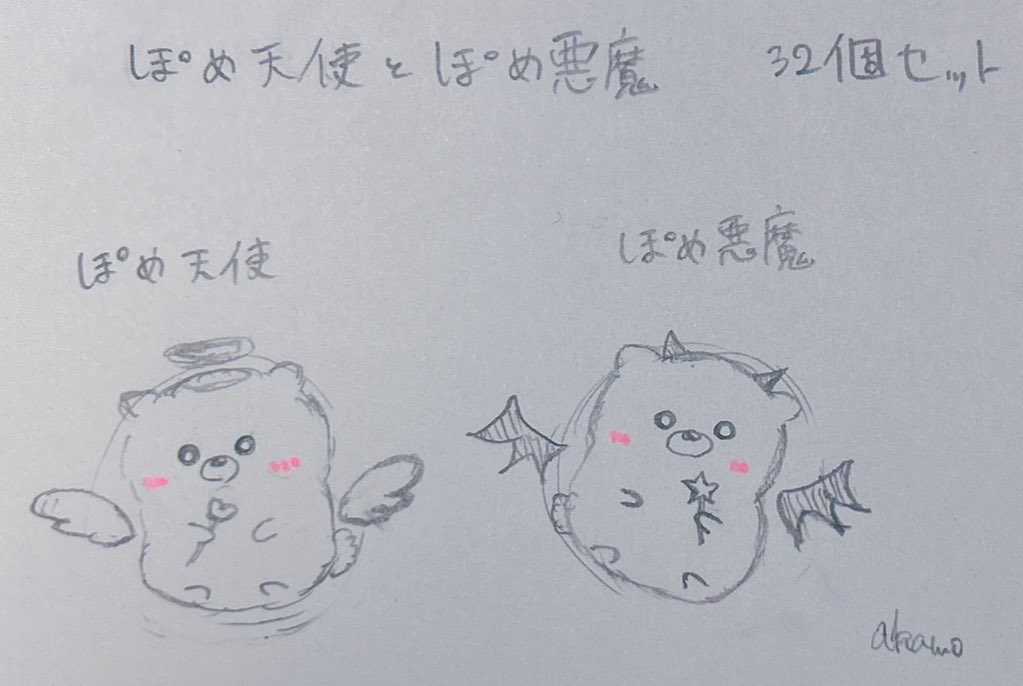 ぽめ天使とぽめ悪魔 32個セット
ぽめ天使
ぽめ悪魔
akamo